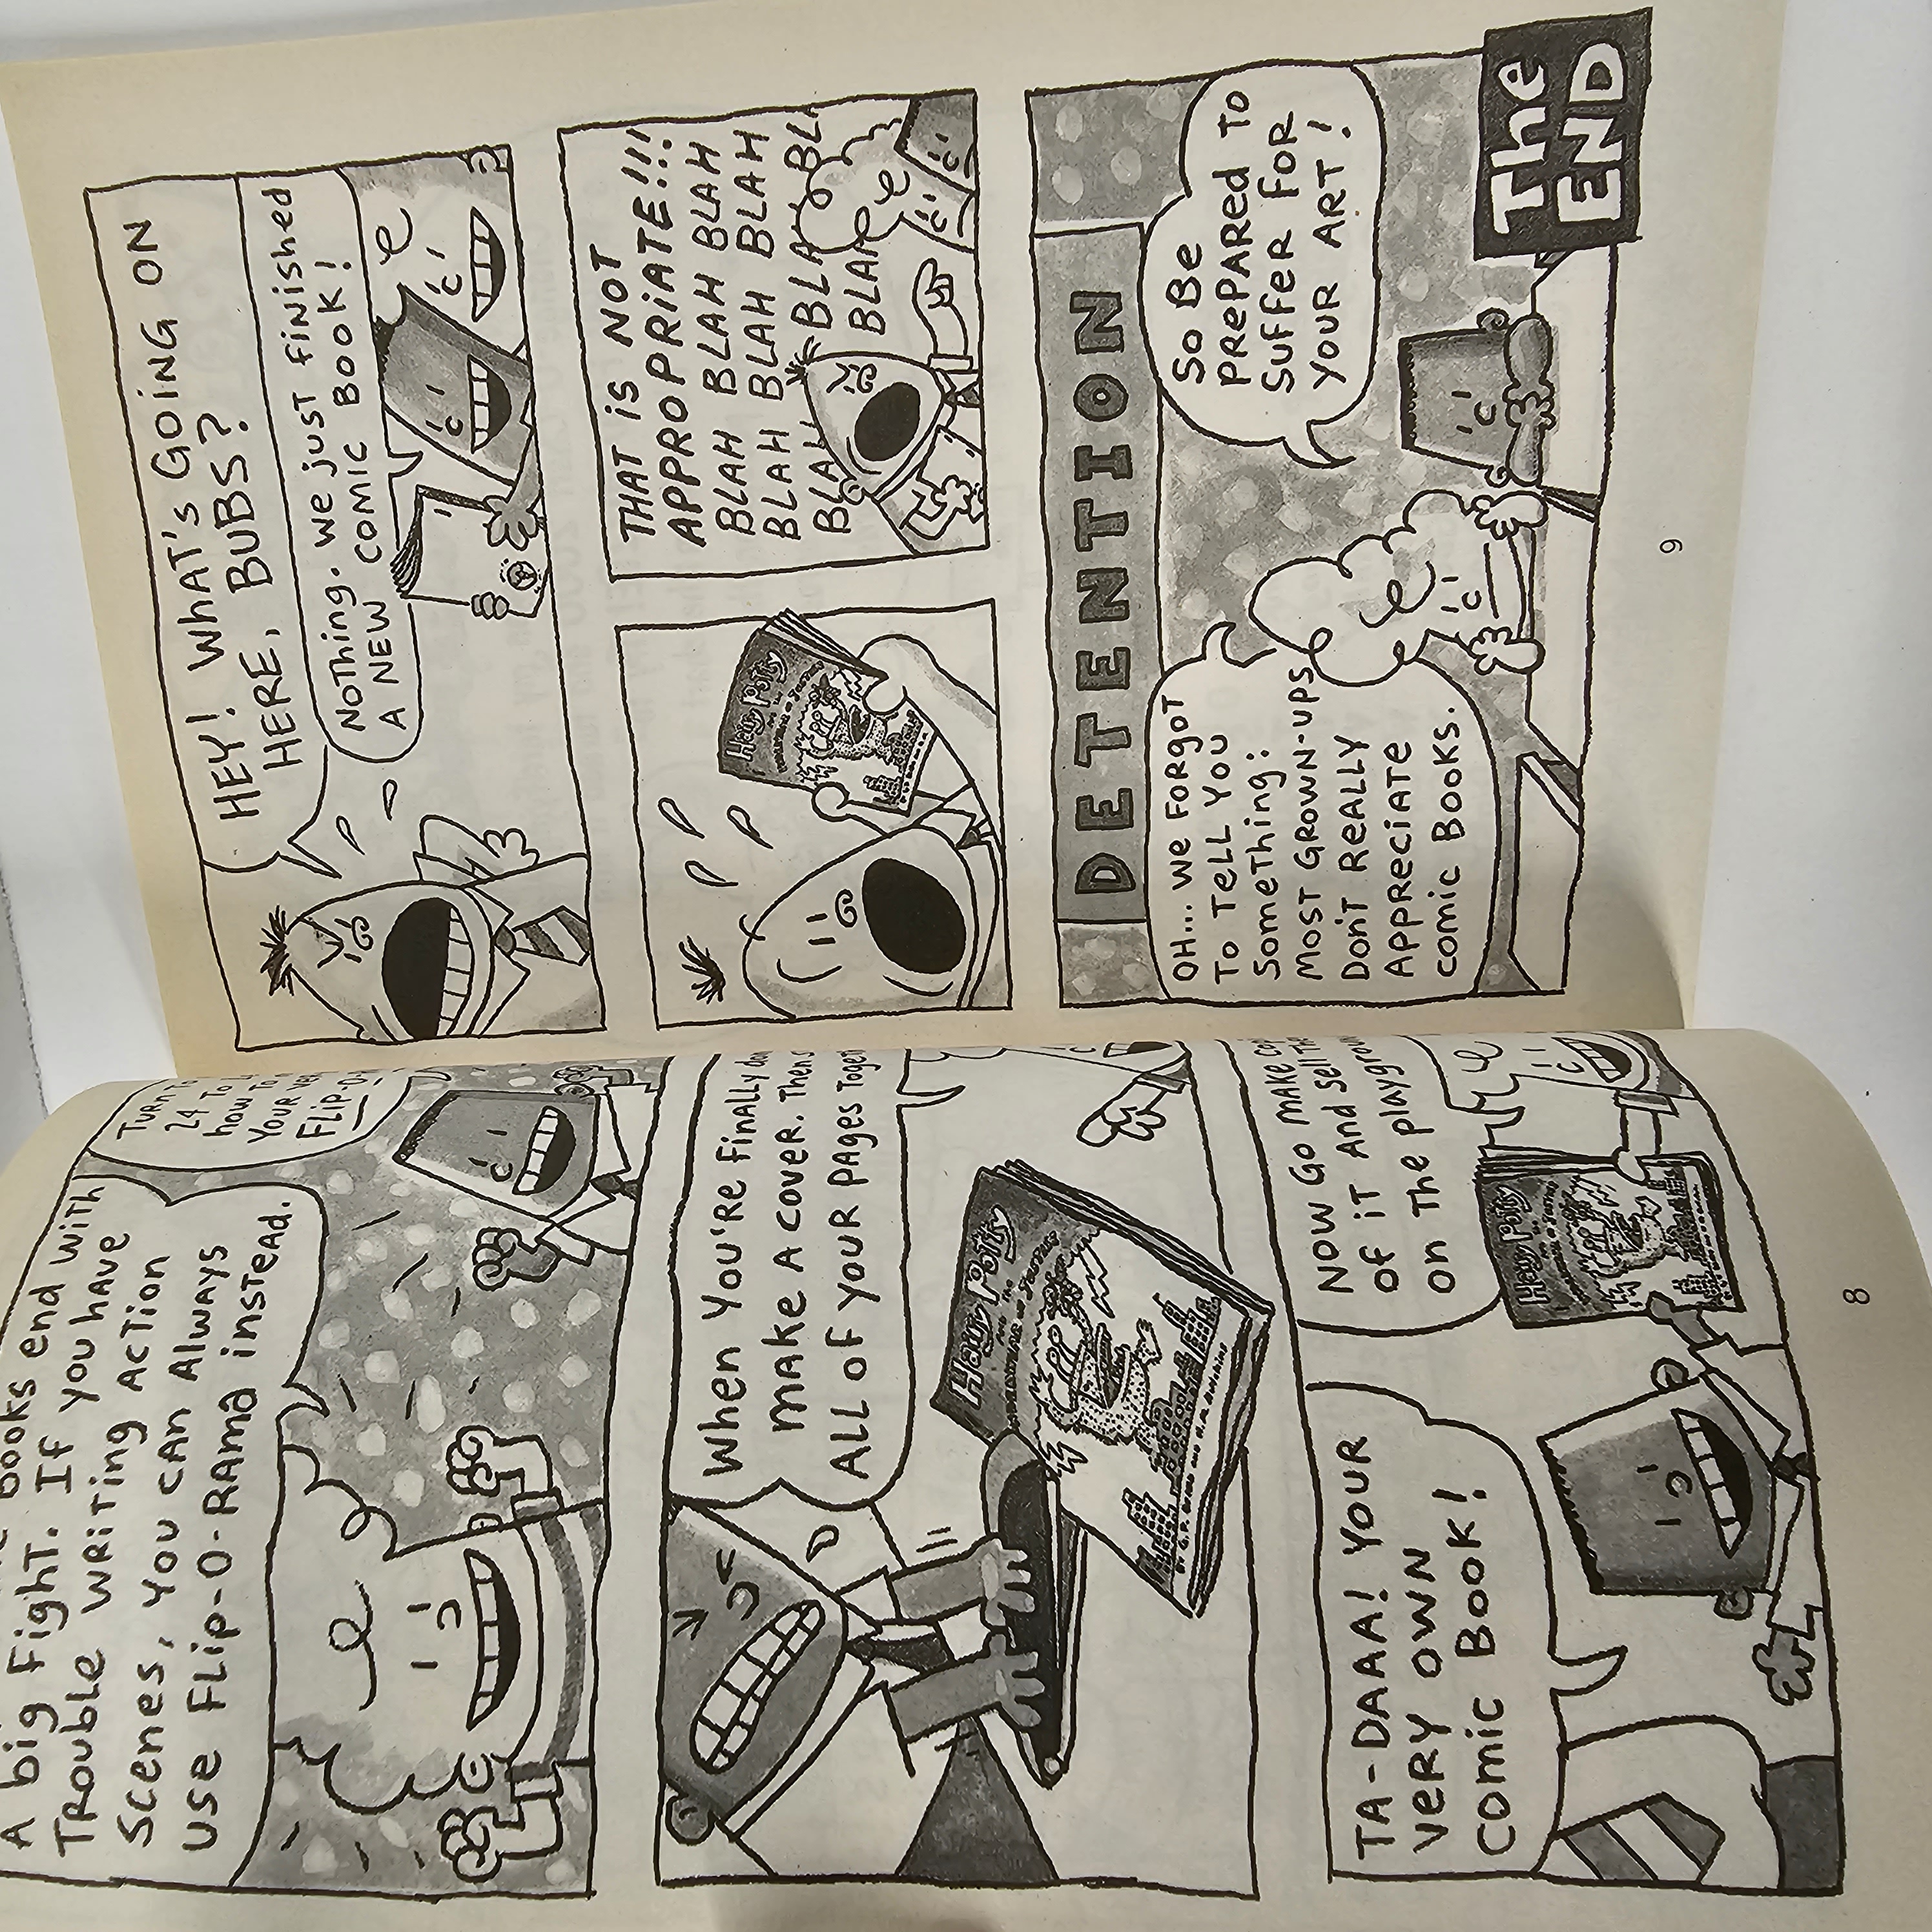 Books end with
A big Fight. If you have
Trouble writing Action
Scenes, you can Always
use Flip-O-Rama instead.
Turn To
24 To
how To
Your
Flip-O-
When You're Finally
make A cover. Then
All of your pages
Hairy Potty
and the
Underwear of Justice
TA-DAAA! Your
very own
comic Book!
Now Go make
of it And Sell
on The
Hairy Potty
8
HEY! What's Going on
here, Bubs?
Nothing. We just finished
a new comic book!
Hairy Potty
and the
THAT is NOT
APPROPRiATE!!!
BLAH BLAH BLAH
BLAH BLAH BLAH
BLAH
DETENTION
Oh... We forgot
To Tell You
Something:
Most Grown-ups
Don't Really
Appreciate
comic Books.
So Be
Prepared to
Suffer for
Your Art!
The
END
9